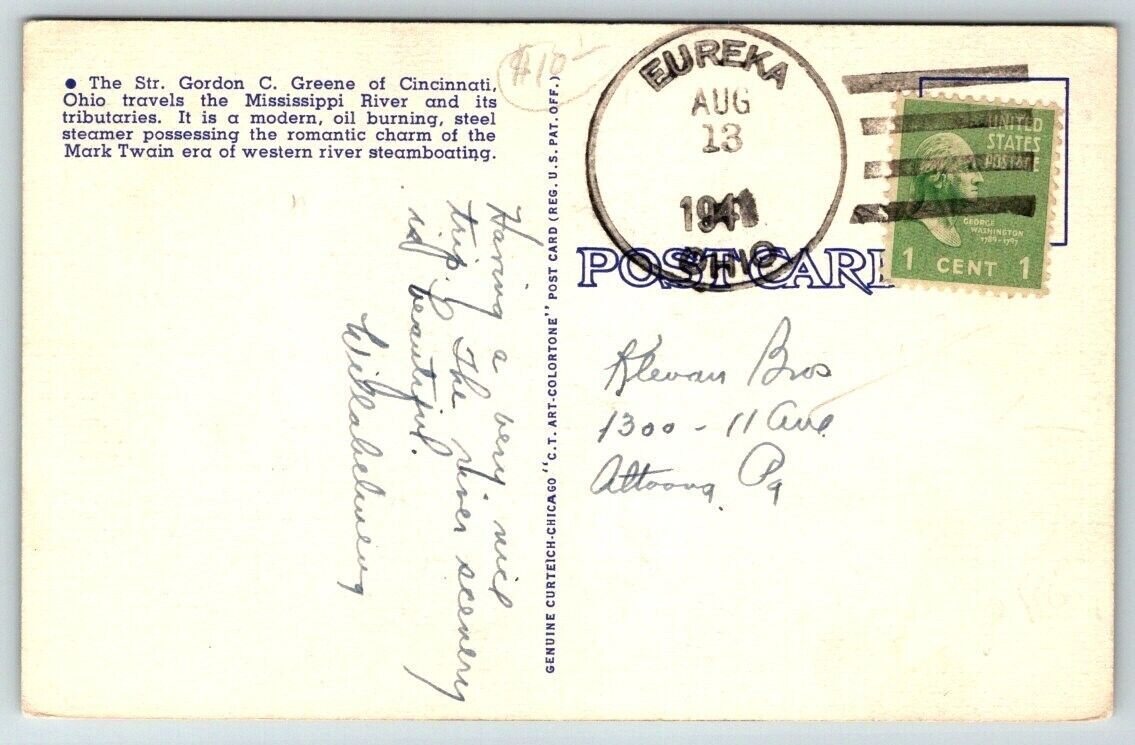 ● The Str. Gordon C. Greene of Cincinnati,
Ohio travels the Mississippi River and its
tributaries. It is a modern, oil burning, steel
steamer possessing the romantic charm of the
Mark Twain era of western river steamboating.
$10
Having a very nice
trip. The river scenery
is beautiful.
GENUINE CURTEICH-CHICAGO "C.T. ART-COLORTONE" POST CARD (REG. U.S. PAT. OFF.)
EUREKA
AUG
13
1941
OHIO
UNITED
STATES
POSTAGE
GEORGE
WASHINGTON
1789-1797
1 CENT 1
POST CARD
Klevan Bros
1300 - 11 Ave
Altoona Pa